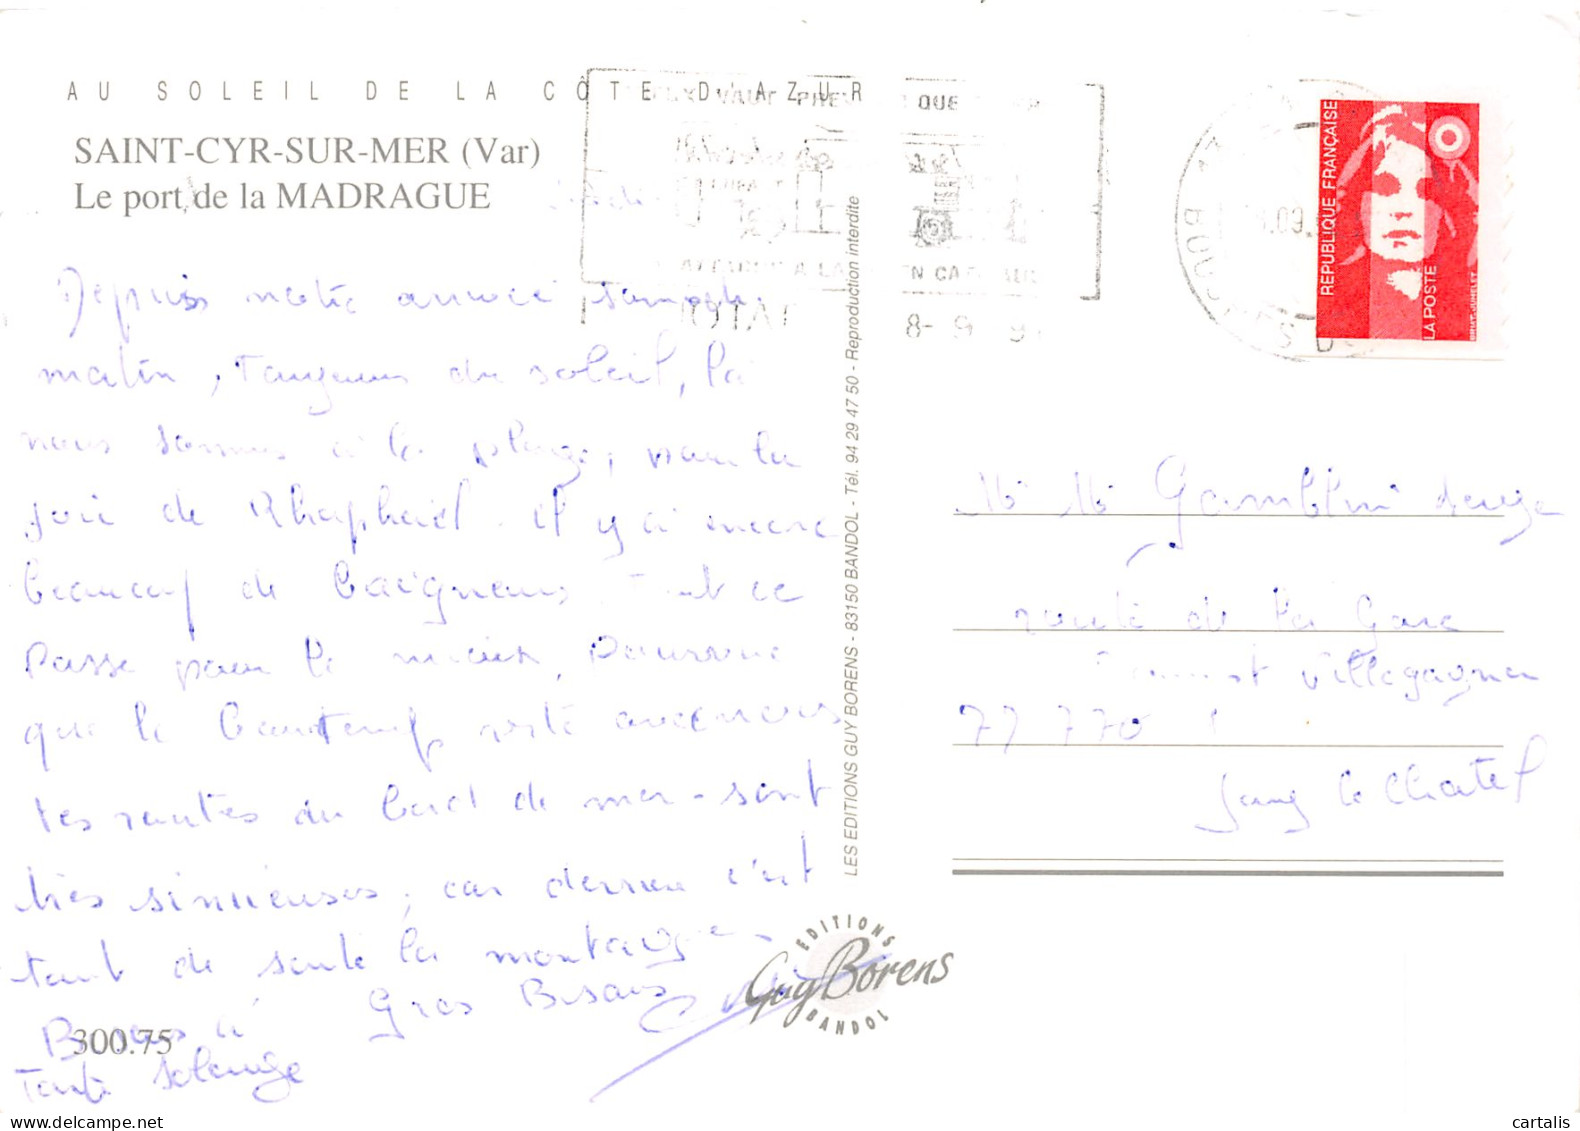 AU SOLEIL DE LA CÔTE D'AZUR
SAINT-CYR-SUR-MER (Var)
Le port de la MADRAGUE
Depuis notre arrivée samedi
matin, Toujours du soleil, là
nous sommes à la plage, pour la
joie de Rhaphaël. il y a encore
beaucoup de baigneurs Tout ce
passe pour le mieux,
que le beau temps reste avec nous
Les routes du bord de mer - sont
très sinueuses, car derrière c'est
tout de suite la montagne.
Gros Bisous
Bisous à
Tante Solange
300.75
LES EDITIONS GUY BORENS - 83150 BANDOL - Tél. 94 29 47 50 - Reproduction interdite
EDITIONS
Guy Borens
BANDOL
REPUBLIQUE FRANÇAISE
LA POSTE
BRIAT-JUMELET
8- 9 9
Mr Mr Gamblin Serge
route de la Gare
Villegagnon
77 770
Jouy le Chatel
cartalis